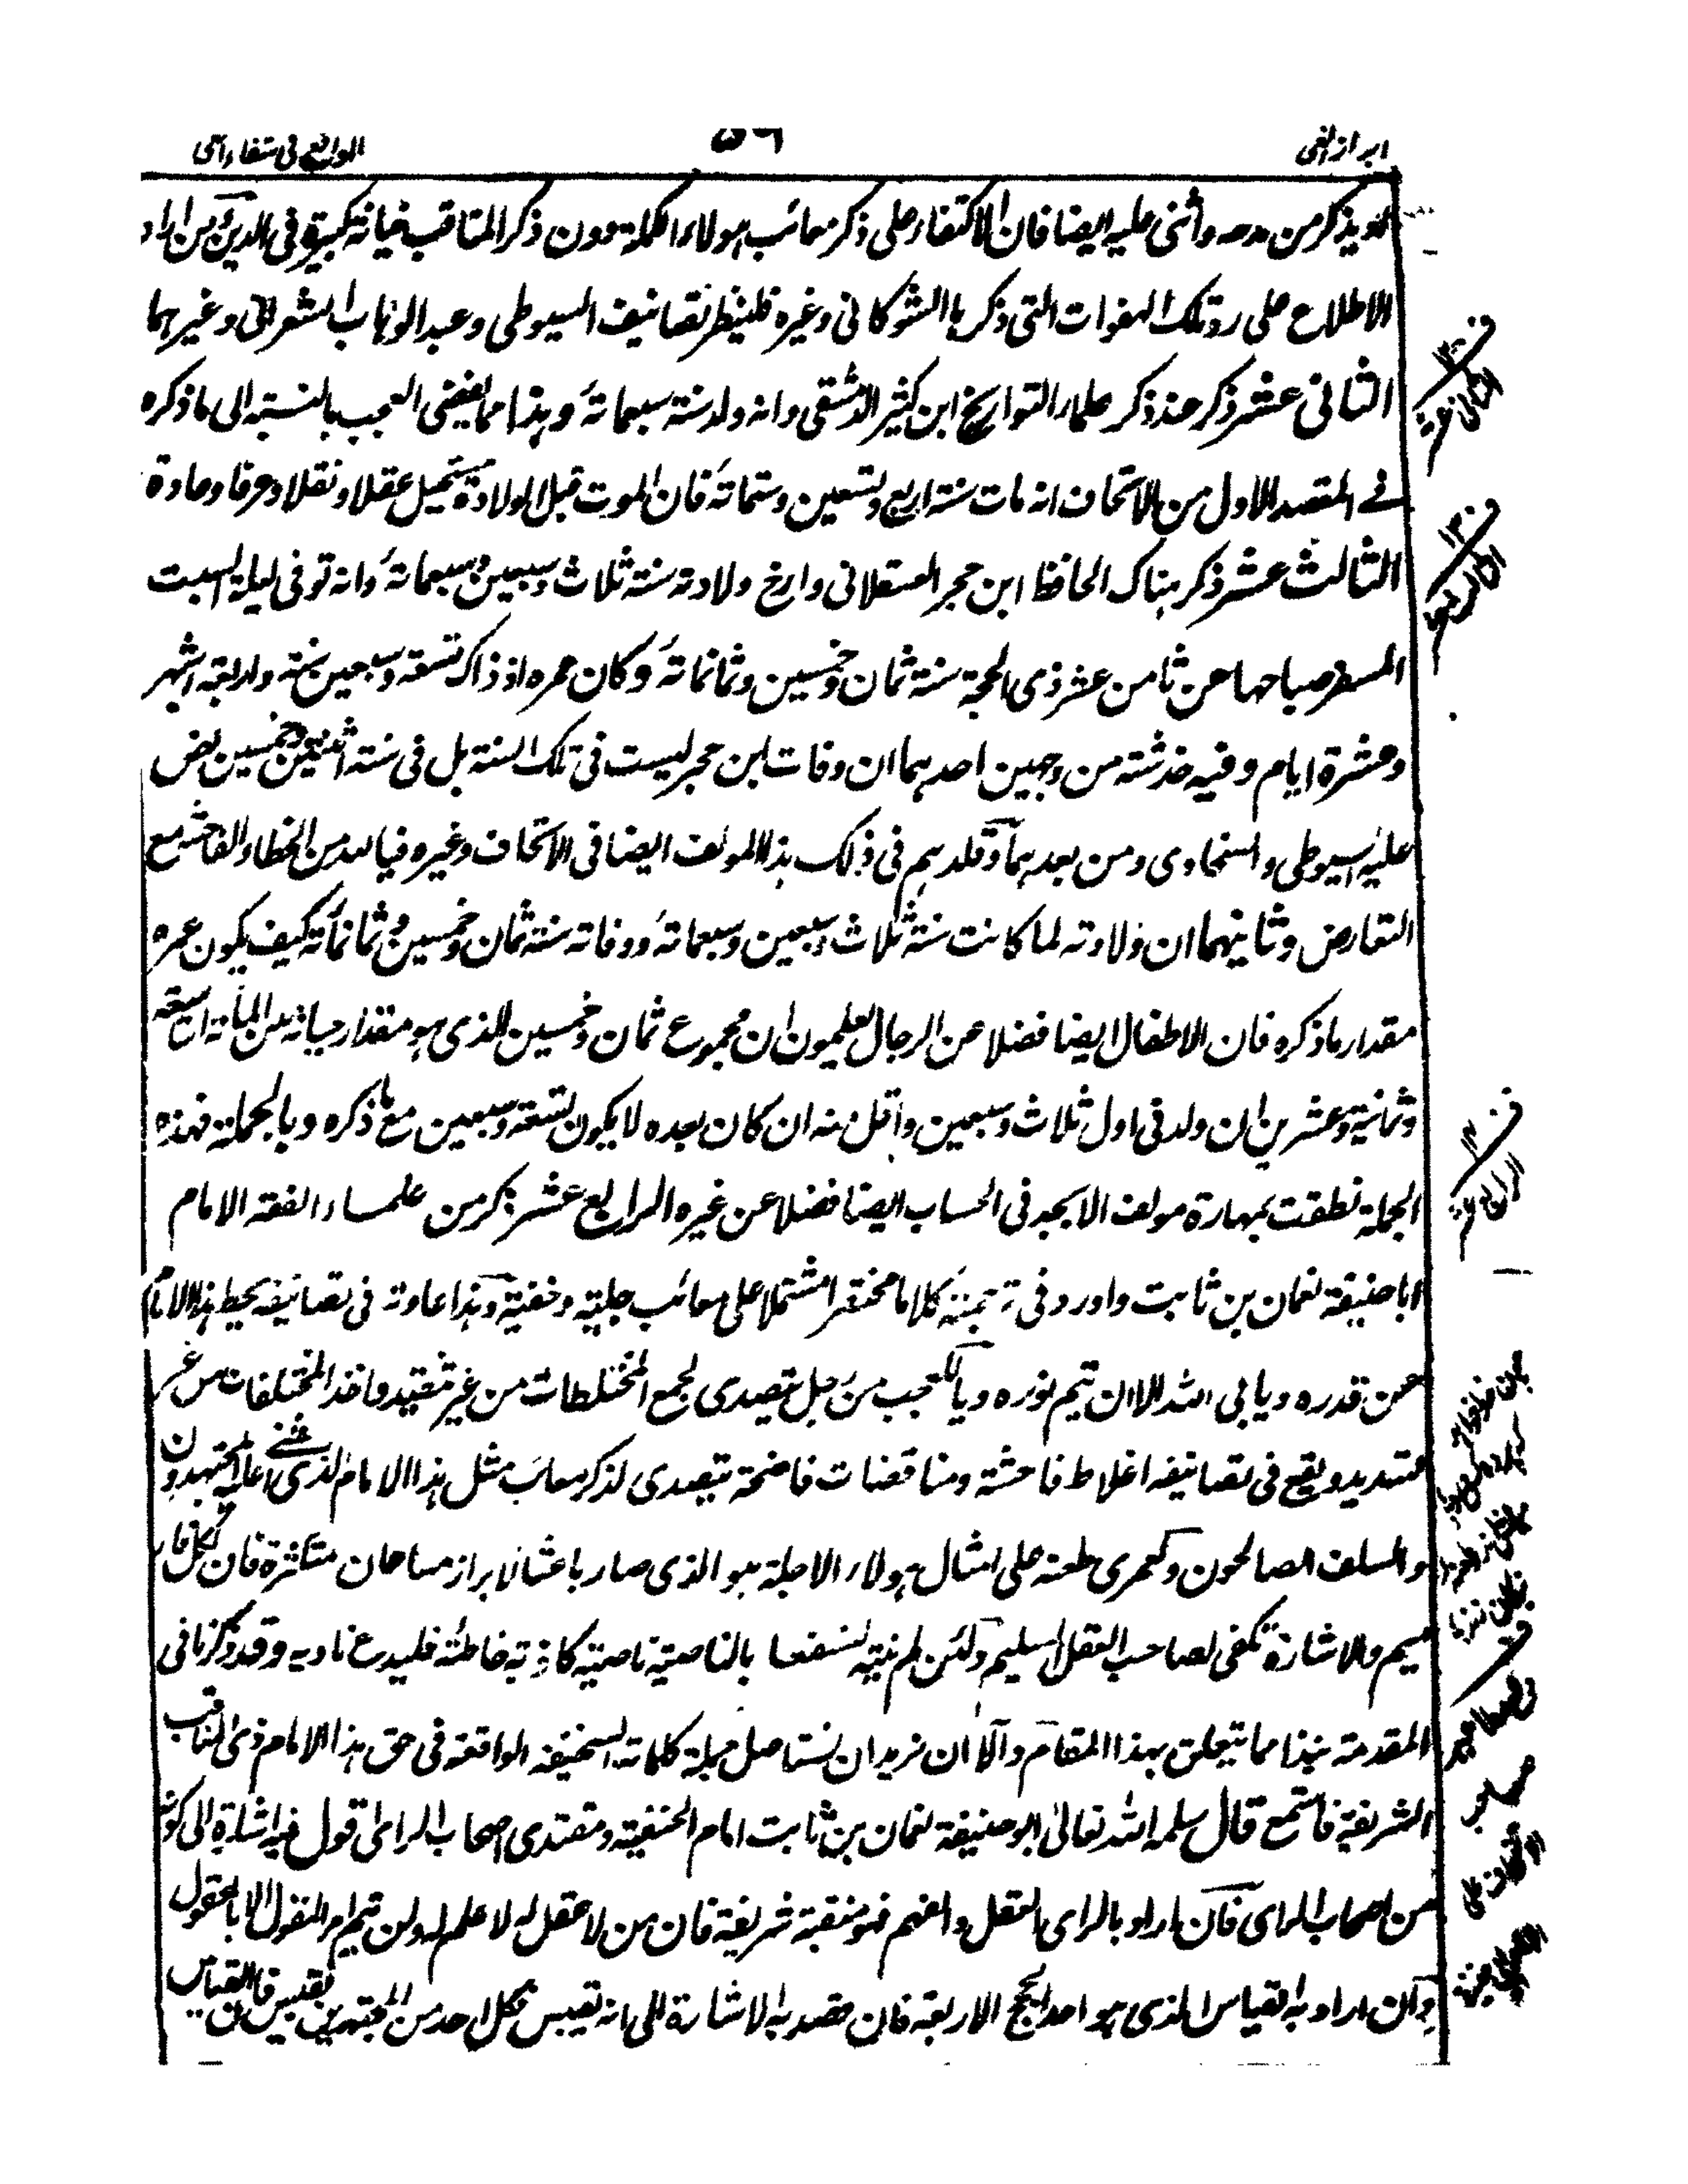 ابراز الغی ٥٦ الواقع فی شفاء العی
ويذكر من مدحه واثنى عليه ايضا فان الاكتفاء على ذكر معائب هولاء الكملة دون ذكر المناقب خيانة كبيرة فى الدين من اراد
الاطلاع على رد تلك الهفوات التى ذكرها الشوكانى وغيره فلينظر تصانيف السيوطى وعبد الوهاب الشعرانى وغيرهما
الثانى عشر ذكر عند ذكر علماء التواريخ ابن كثير الدمشقى وانه ولد سنة سبعمائة وهذا مما يفضى العجب بالنسبة الى ما ذكره
فے المقصد الاول من الاتحاف انه مات سنة اربع وتسعين وستمائة فان الموت قبل الولادة مستحيل عقلا ونقلا وعرفا وعادة
الثالث عشر ذكر هناك الحافظ ابن حجر العسقلانى وارخ ولادته سنة ثلاث وسبعين وسبعمائة وانه توفى ليلة السبت
المسفر صباحها عن ثامن عشر ذى الحجة سنة ثمان وخمسين وثمانمائة وكان عمره اذ ذاك تسعة وسبعين سنة واربعة اشهر
وعشرة ايام وفيه خدشة من وجهين احدهما ان وفات ابن حجر ليست فى تلك السنة بل فى سنة اثنتين وخمسين نص
عليه السيوطى والسخاوى ومن بعدهما وقلدهم فى ذلك هذا المولف ايضا فى الاتحاف وغيره فيا لله من الخطاء الفاحش مع
التعارض وثانيهما ان ولادته لما كانت سنة ثلاث وسبعين وسبعمائة ووفاته سنة ثمان وخمسين وثمانمائة كيف يكون عمره
مقدار ما ذكره فان الاطفال ايضا فضلا عن الرجال يعلمون ان مجموع ثمان وخمسين الذى هو مقدار حياته من المائة التاسعة
وثمانية وعشرين ان ولد فى اول ثلاث وسبعين واقل منه ان كان بعده لا يكون تسعة وسبعين مع ما ذكره وبالجملة فهذه
الجملة نطقت بمهارة مولف الابجد فى الحساب ايضا فضلا عن غيره الرابع عشر ذكر من علماء الفقه الامام
ابا حنيفة نعمان بن ثابت واورد فى ترجمته كلاما مختصرا مشتملا على معائب جلية وخفية وهذا عادته فى تصانيفه يحط هذا الامام
عن قدره ويابى الله الا ان يتم نوره ويا للعجب من رجل يتصدى لجمع المختلطات من غير تنقيد واخذ المختلفات من غير
تسديد ويقع فى تصانيفه اغلاط فاحشة ومناقضات فاضحة يتصدى لذكر معائب مثل هذا الامام الذى اثنى عليه المجتهدون
والسلف الصالحون ولعمرى طعنه على امثال هولاء الاجلة هو الذى صار باعثا لابراز مسامحات متكثرة فان لكل فار
ميم والاشارة تكفى لصاحب العقل السليم ولئن لم ينته لنسفعا بالناصية ناصية كاذبة خاطئة فليدع ناديه وقد ذكرنا فى
المقدمة نبذا مما يتعلق بهذا المقام والآن نريد ان نستاصل جملة كلماته السخيفة الواقعة فى حق هذا الامام ذى المناقب
الشريفة فاستمع قال سلمه الله تعالى ابو حنيفة نعمان بن ثابت امام الحنفية ومقتدى اصحاب الراى اقول فيه اشارة الى كونه
من اصحاب الراى فان اراد بالراى العقل والفهم فهو منقبة شريفة فان من لا عقل له لا علم له ولن يتم امر المنقول الا بالمعقول
وان اراد به القياس الذى هو احد الحجج الاربعة فان قصد به الاشارة الى انه يقيس فكل احد من المجتهدين يقيس فان القياس